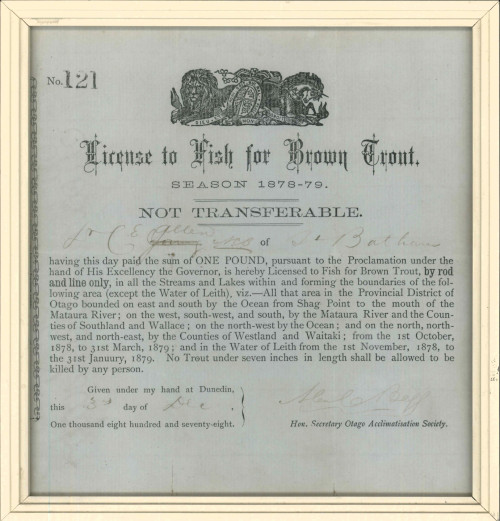 No. 121
License to Fish for Brown Trout.
SEASON 1878-79.
NOT TRANSFERABLE.
of
having this day paid the sum of ONE POUND, pursuant to the Proclamation under the
hand of His Excellency the Governor, is hereby Licensed to Fish for Brown Trout, by rod
and line only, in all the Streams and Lakes within and forming the boundaries of the fol-
lowing area (except the Water of Leith), viz.—All that area in the Provincial District of
Otago bounded on east and south by the Ocean from Shag Point to the mouth of the
Mataura River; on the west, south-west, and south, by the Mataura River and the Coun-
ties of Southland and Wallace; on the north-west by the Ocean; and on the north, north-
west, and north-east, by the Counties of Westland and Waitaki; from the 1st October,
1878, to 31st March, 1879; and in the Water of Leith from the 1st November, 1878, to
the 31st January, 1879. No Trout under seven inches in length shall be allowed to be
killed by any person.
Given under my hand at Dunedin,
this 3rd day of Dec
One thousand eight hundred and seventy-eight.
Hon. Secretary Otago Acclimatisation Society.